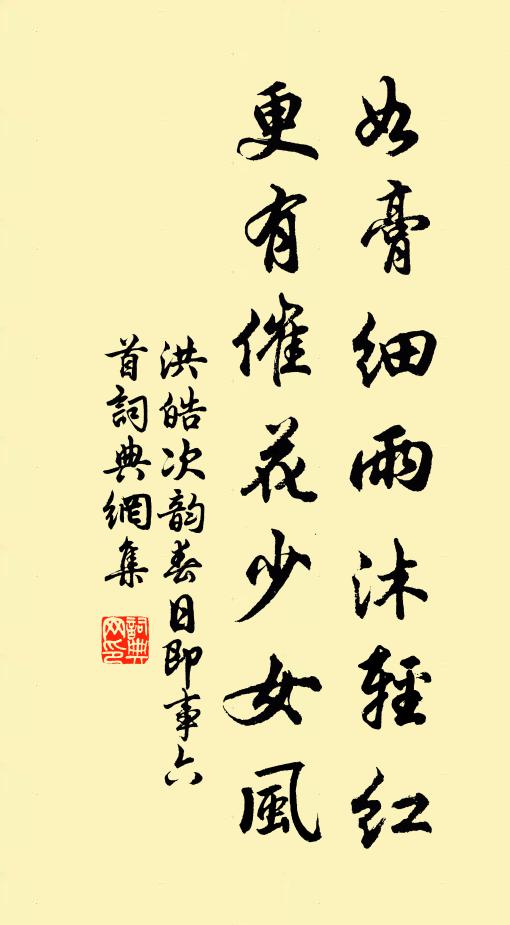 如膏細雨沐輕紅
更有催花少女風
洪皓次韵春日即事六
首詞典網集
詞典
网印